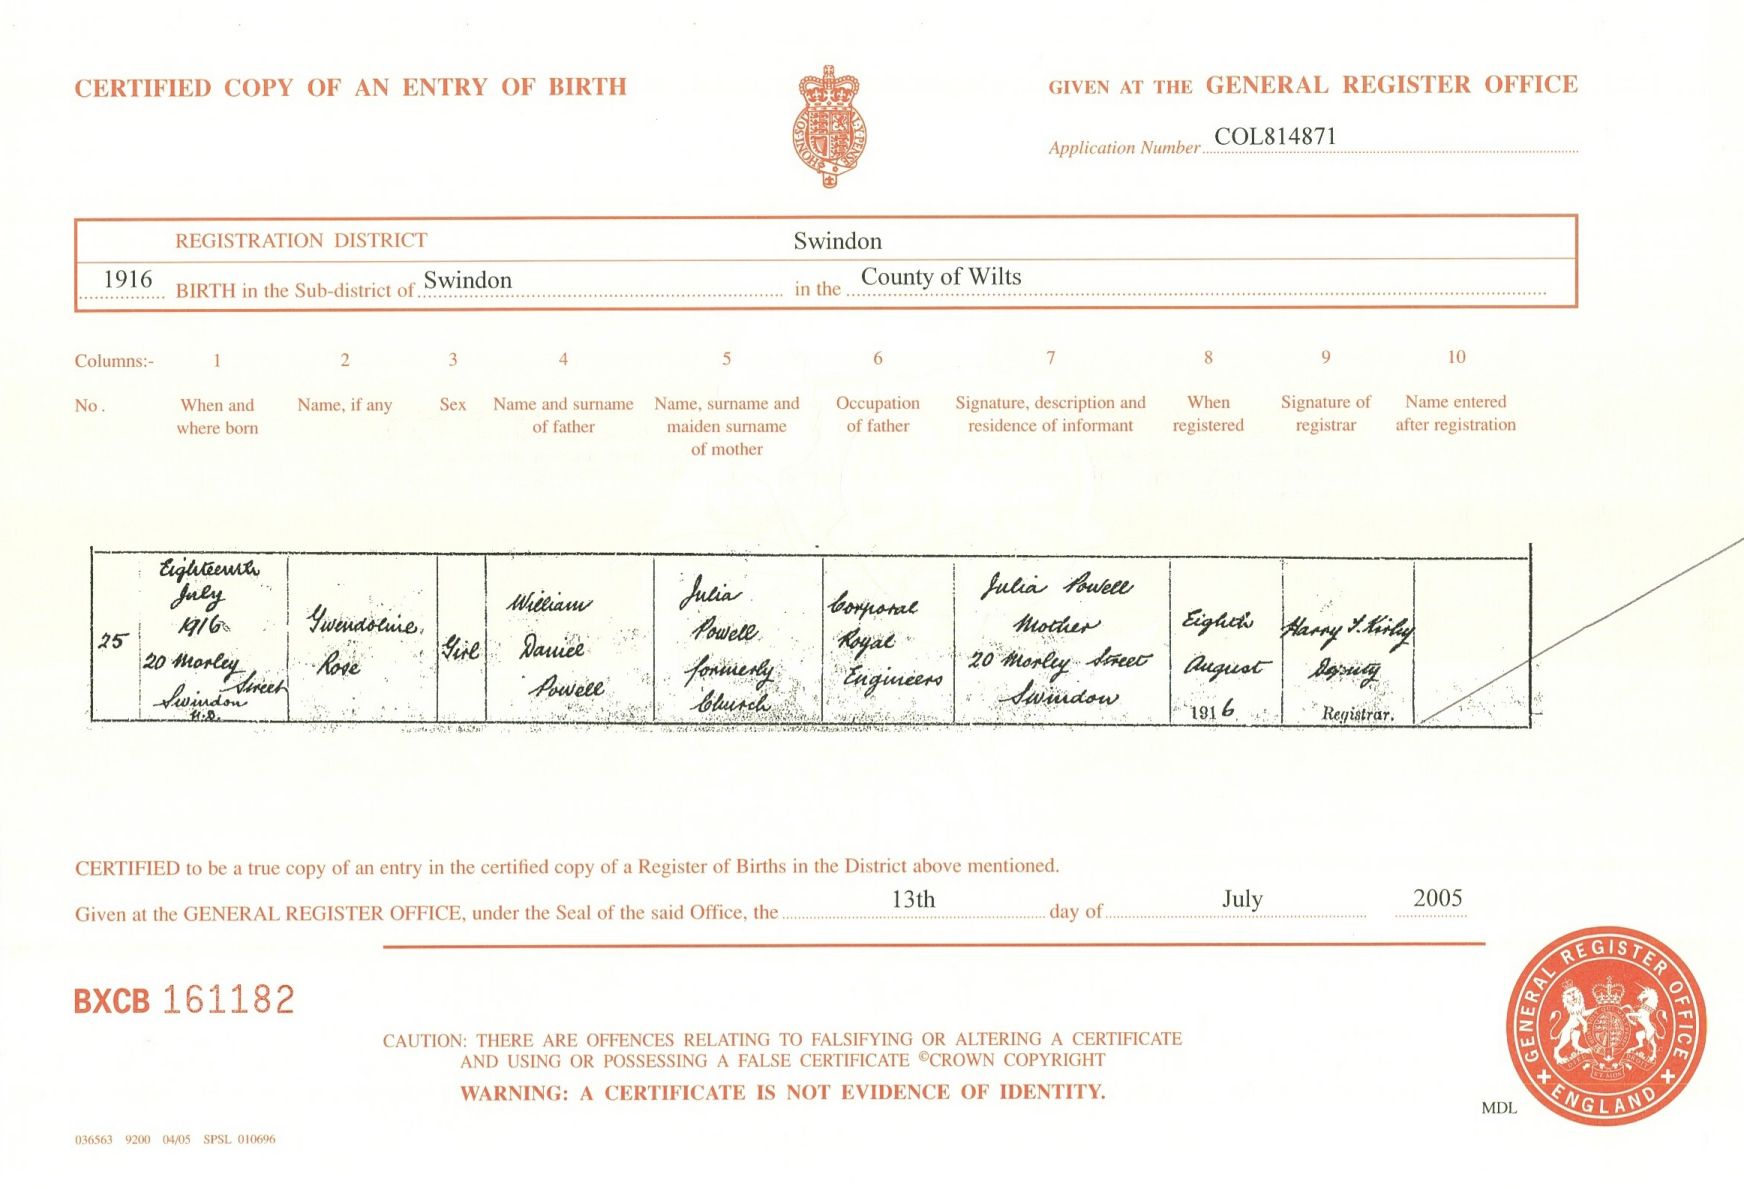 CERTIFIED COPY OF AN ENTRY OF BIRTH
GIVEN AT THE GENERAL REGISTER OFFICE
Application Number COL814871
HONI SOIT QUI MAL Y PENSE
REGISTRATION DISTRICT Swindon
1916 BIRTH in the Sub-district of Swindon in the County of Wilts
Columns:- 1 2 3 4 5 6 7 8 9 10
No. When and where born
Name, if any
Sex
Name and surname of father
Name, surname and maiden surname of mother
Occupation of father
Signature, description and residence of informant
When registered
Signature of registrar
Name entered after registration
25
Eighteenth
July
1916
20 Morley
Street
Swindon
U.D.
Gwendoline
Rose
Girl
William
Daniel
Powell
Julia
Powell
formerly
Church
Corporal
Royal
Engineers
Julia Powell
Mother
20 Morley Street
Swindon
Eighth
August
1916
Harry J. Kirby
Deputy
Registrar.
CERTIFIED to be a true copy of an entry in the certified copy of a Register of Births in the District above mentioned.
Given at the GENERAL REGISTER OFFICE, under the Seal of the said Office, the 13th day of July 2005
BXCB 161182
CAUTION: THERE ARE OFFENCES RELATING TO FALSIFYING OR ALTERING A CERTIFICATE
AND USING OR POSSESSING A FALSE CERTIFICATE ©CROWN COPYRIGHT
WARNING: A CERTIFICATE IS NOT EVIDENCE OF IDENTITY.
GENERAL REGISTER OFFICE
ENGLAND
MDL
036563 9200 04/05 SPSL 010696